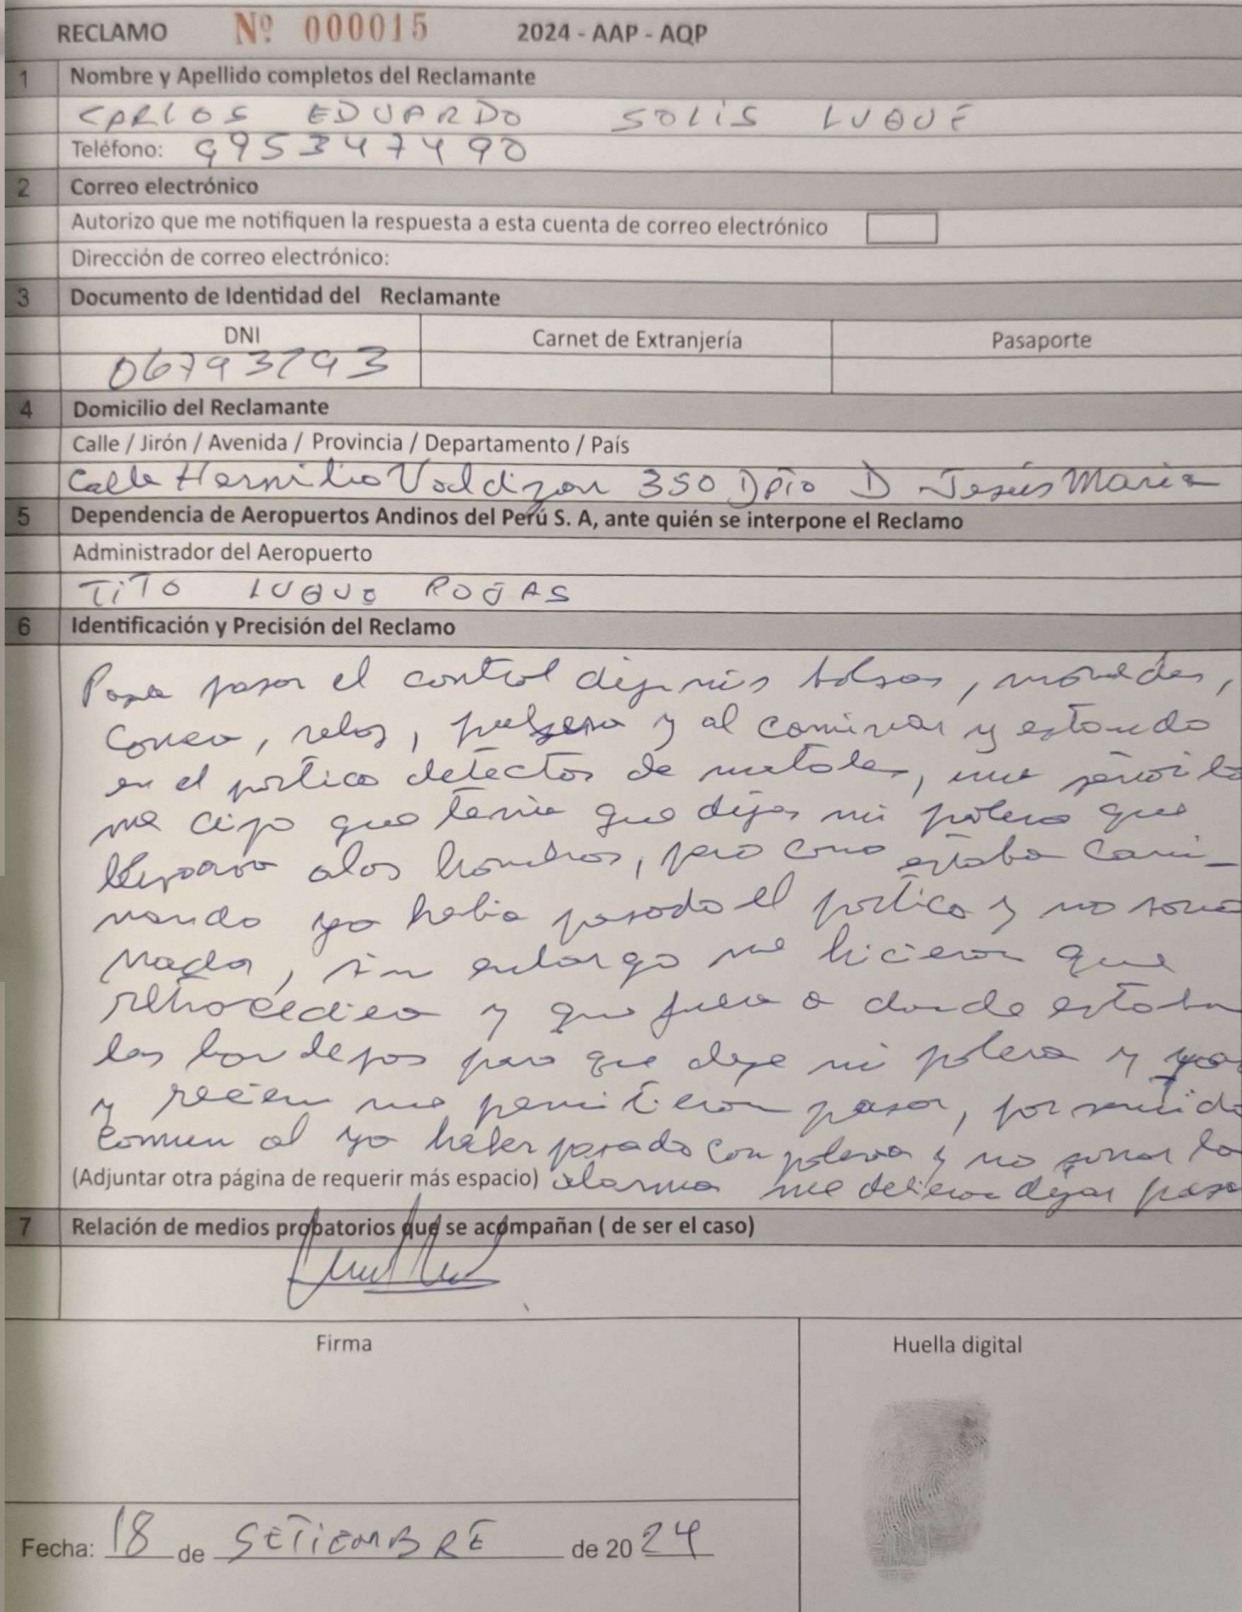 RECLAMO Nº 000015 2024 - AAP - AQP
1 Nombre y Apellido completos del Reclamante
CARLOS EDUARDO SOLIS LUQUE
Teléfono: 995347490
2 Correo electrónico
Autorizo que me notifiquen la respuesta a esta cuenta de correo electrónico
Dirección de correo electrónico:
3 Documento de Identidad del Reclamante
DNI Carnet de Extranjería Pasaporte
06793793
4 Domicilio del Reclamante
Calle / Jirón / Avenida / Provincia / Departamento / País
Calle Hermilio Valdizan 350 Dpto D Jesús Maria
5 Dependencia de Aeropuertos Andinos del Perú S. A, ante quién se interpone el Reclamo
Administrador del Aeropuerto
TITO LUQUE ROJAS
6 Identificación y Precisión del Reclamo
Para pasar el control deje mis bolsas, monedas,
correa, reloj, pulsera y al caminar y estando
en el portico detector de metales, una señorita
me dijo que tenia que dejar mi polera que
llevaba a los hombros, pero como estaba cami-
nando ya habia pasado el portico y no sonó
nada, sin embargo me hicieron que
retrocediera y que fuera a donde estaban
las bandejas para que deje mi polera y
y recien me permitieron pasar, por sentido
comun al yo haber pasado con polera y no sonar la
(Adjuntar otra página de requerir más espacio) alarma me debieron dejar pasar
7 Relación de medios probatorios que se acompañan ( de ser el caso)
Firma Huella digital
Fecha: 18 de SETIEMBRE de 2024